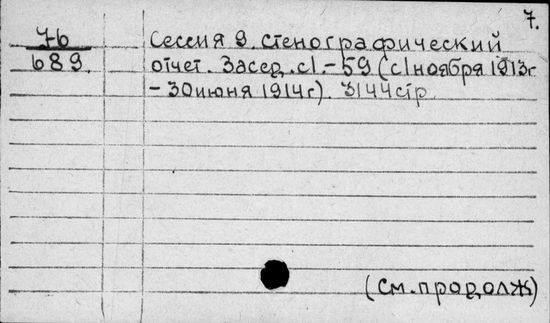 7.
76
689.
Сессия 9. Стенографический
отчет. Засед. с 1.-59 (с 1 ноября 1913г
- 30 июня 1914г). 3144 стр.
(см. продолж)